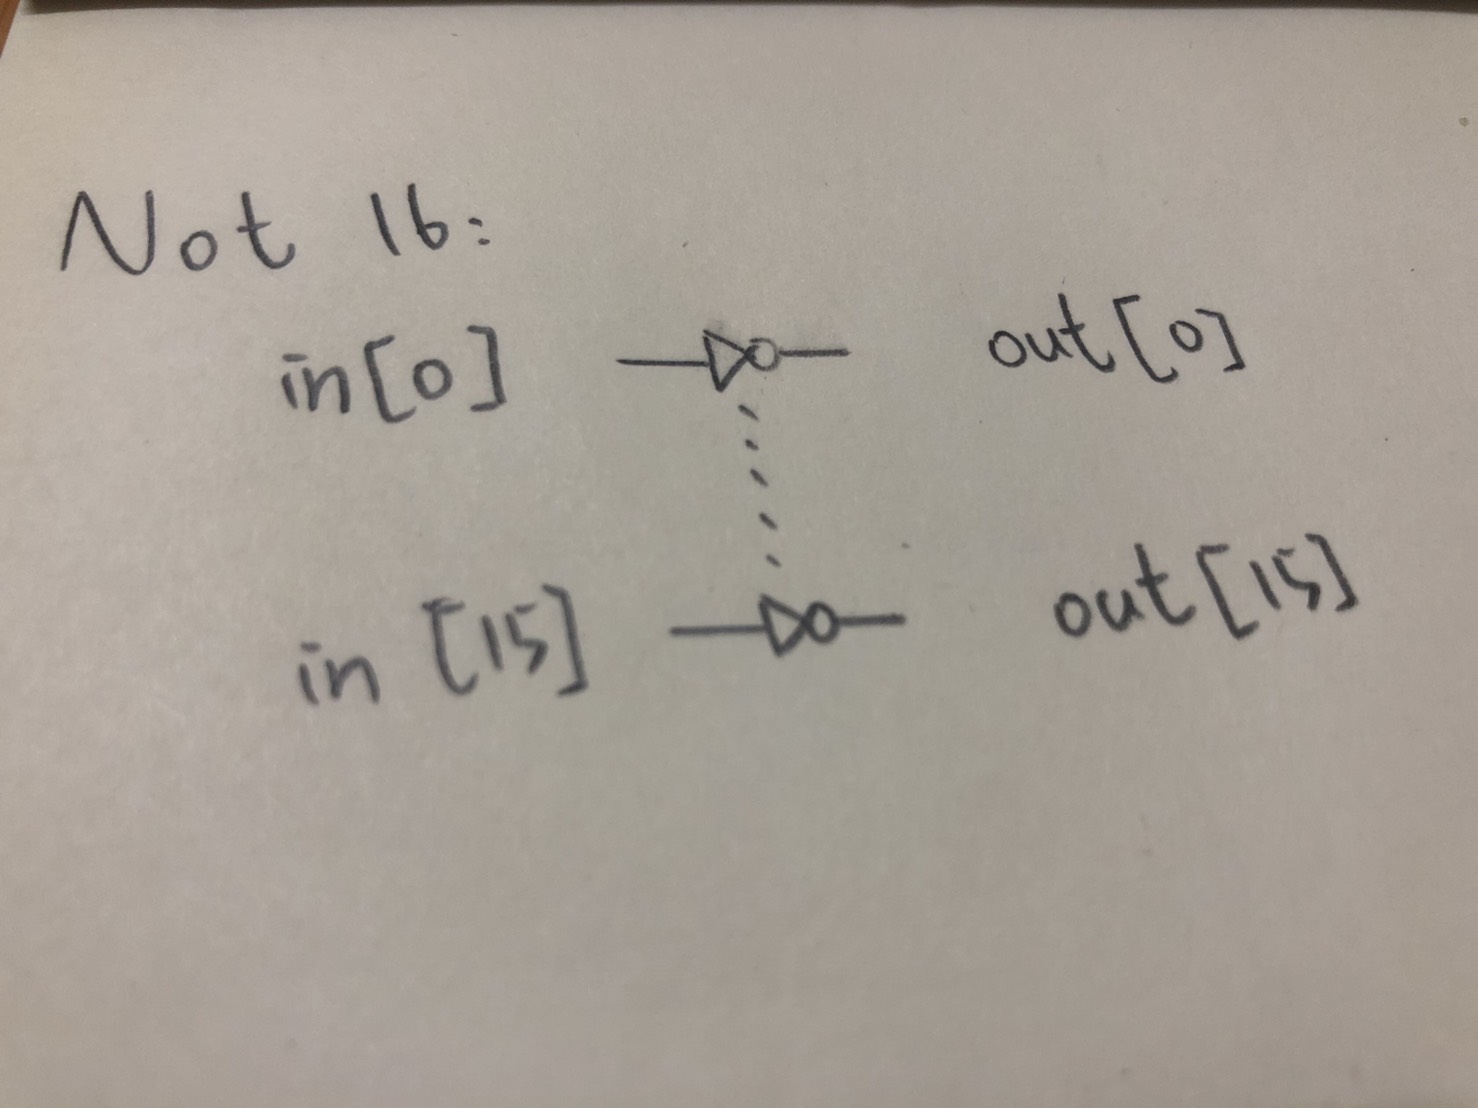 Not 16:
in[0] out[0]
in [15] out[15]